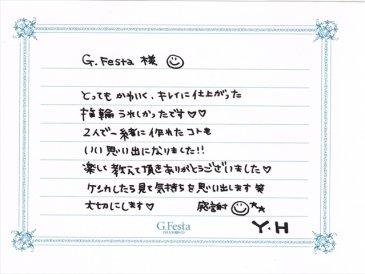 G.Festa 様 ☺
とっても かわいく、キレイに仕上がった
指輪 うれしかったです♡♡
2人で一緒に作れたコトも
いい思い出になりました!!
楽しく教えて頂きありがとうございました♡
ケンカしたら見て気持ちを思い出します 笑
大切にします♡ 感謝☺☆☆
G.Festa
Y・H